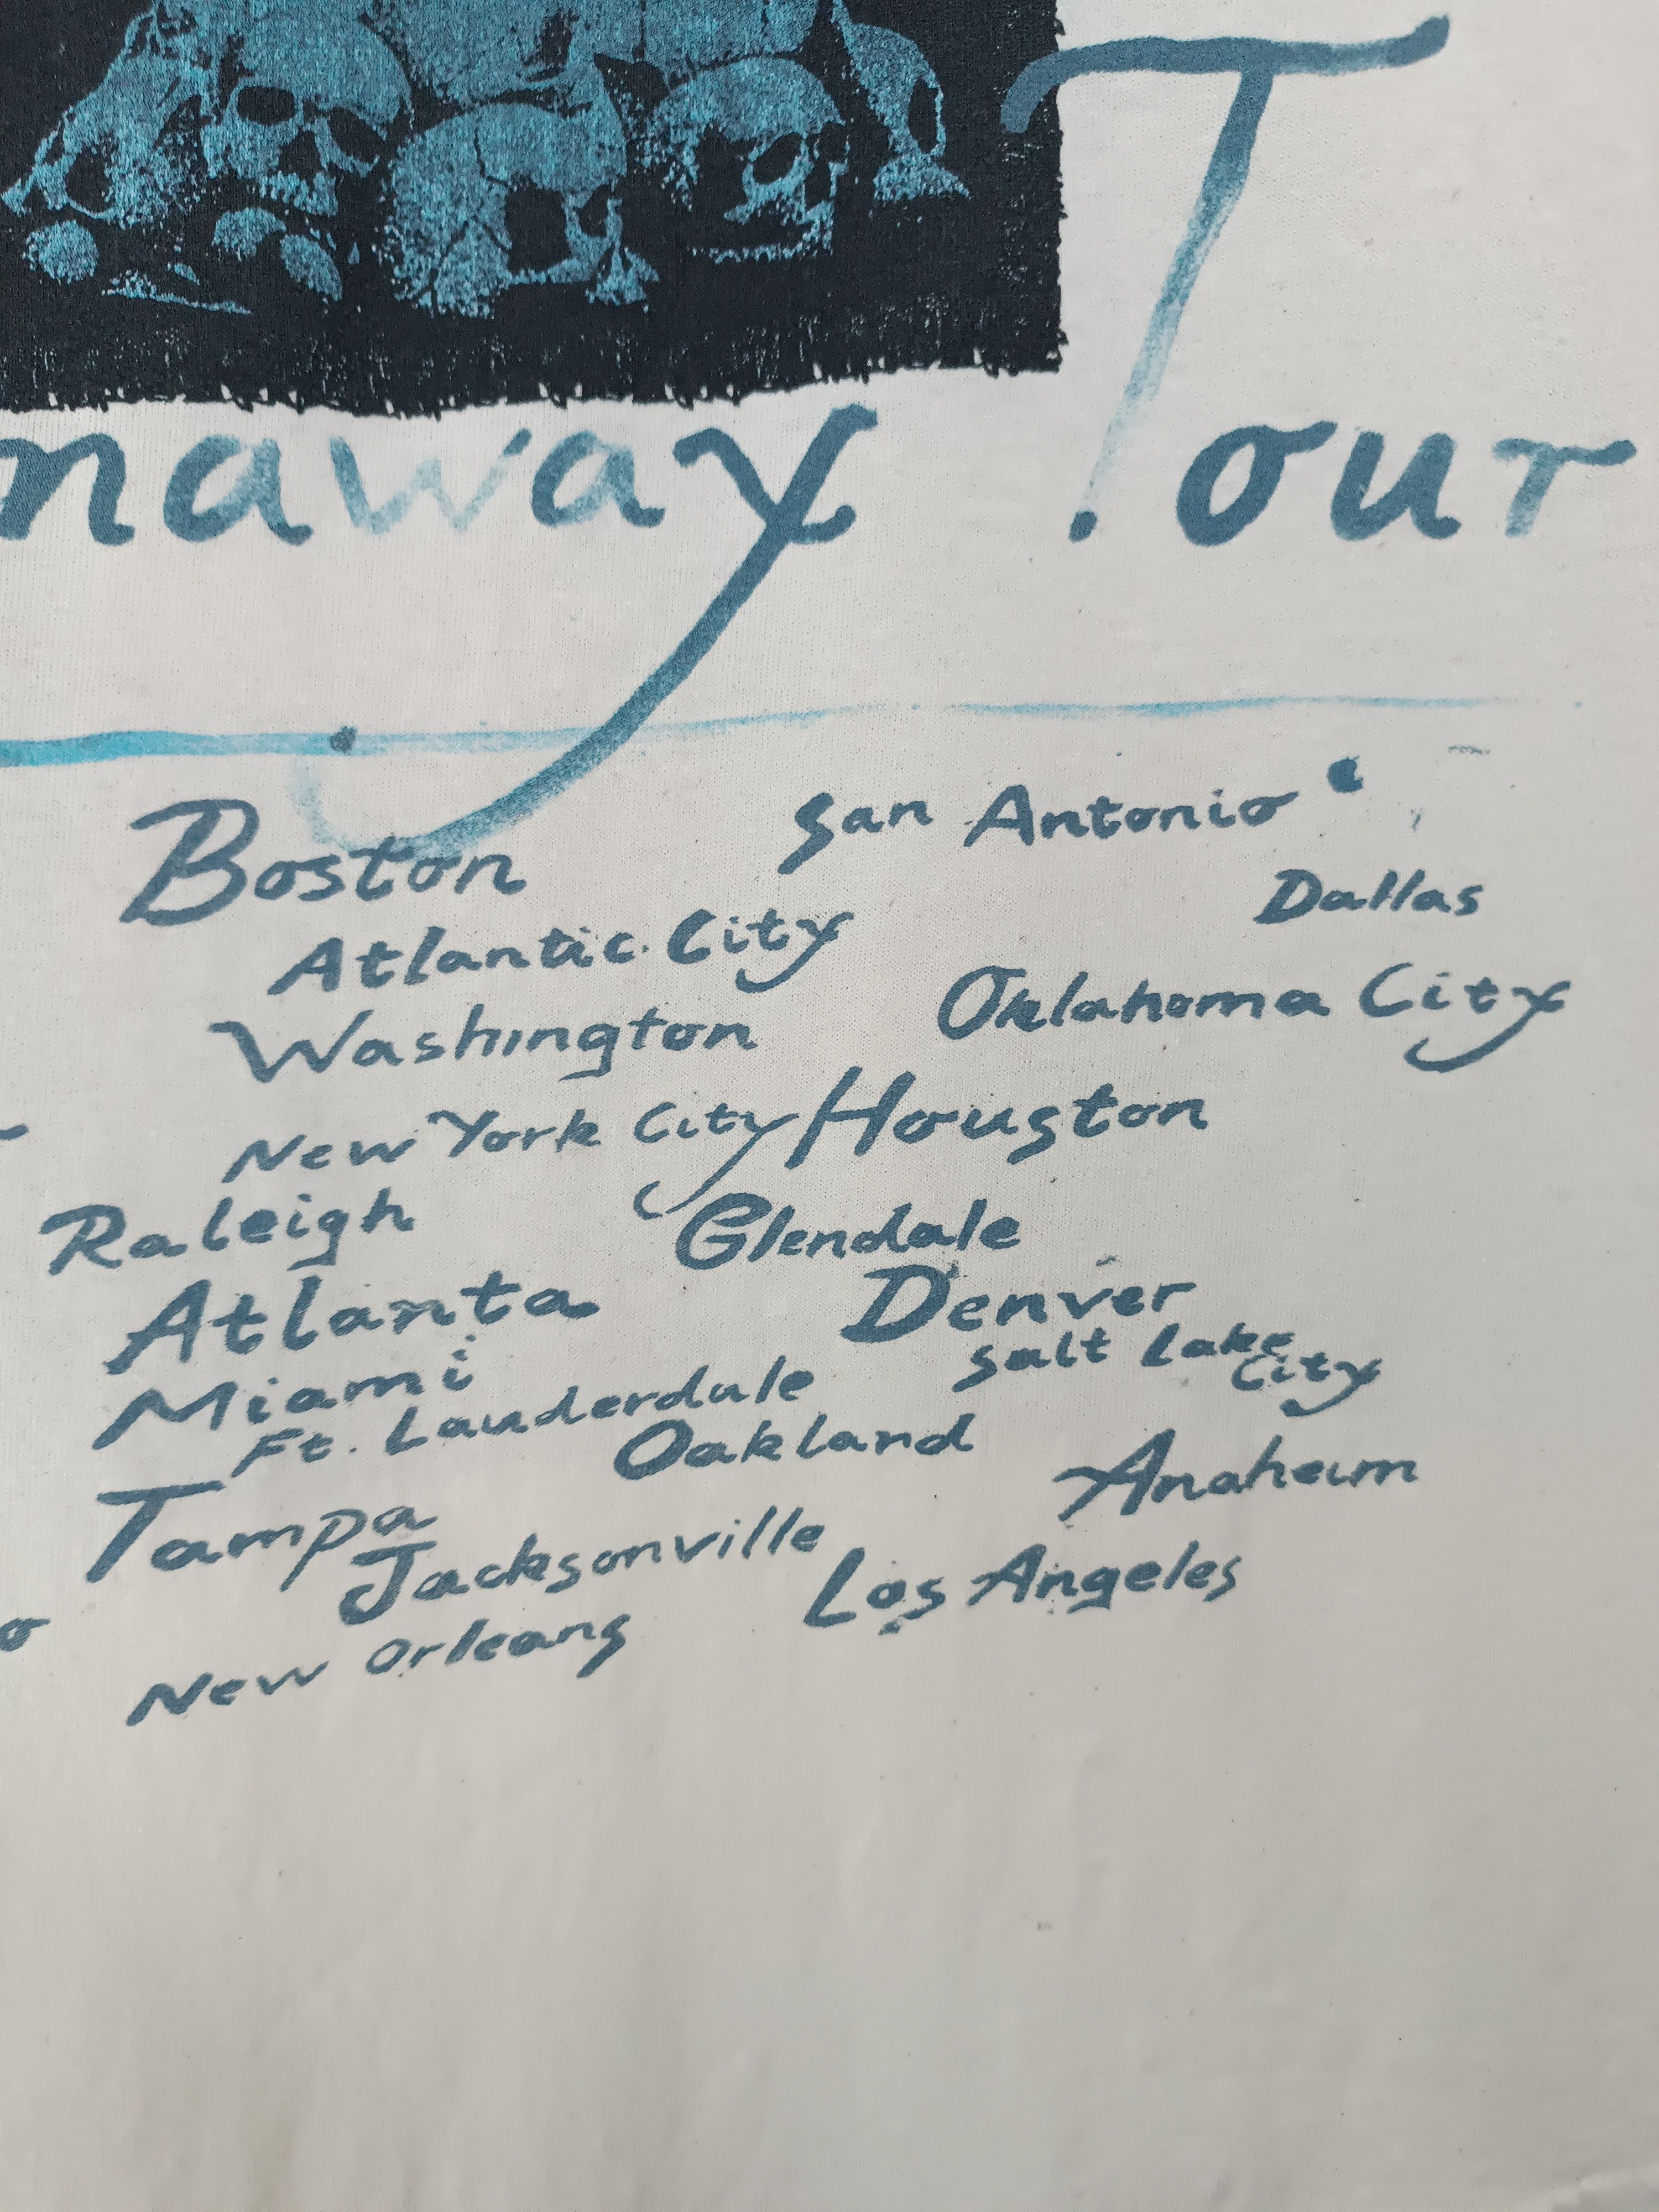 naway Tour
Boston
Atlantic City
Washington
New York City
Raleigh
Atlanta
Miami
Ft. Lauderdale
Tampa
Jacksonville
New Orleans
San Antonio
Dallas
Oklahoma City
Houston
Glendale
Denver
Salt Lake
City
Oakland
Anaheim
Los Angeles